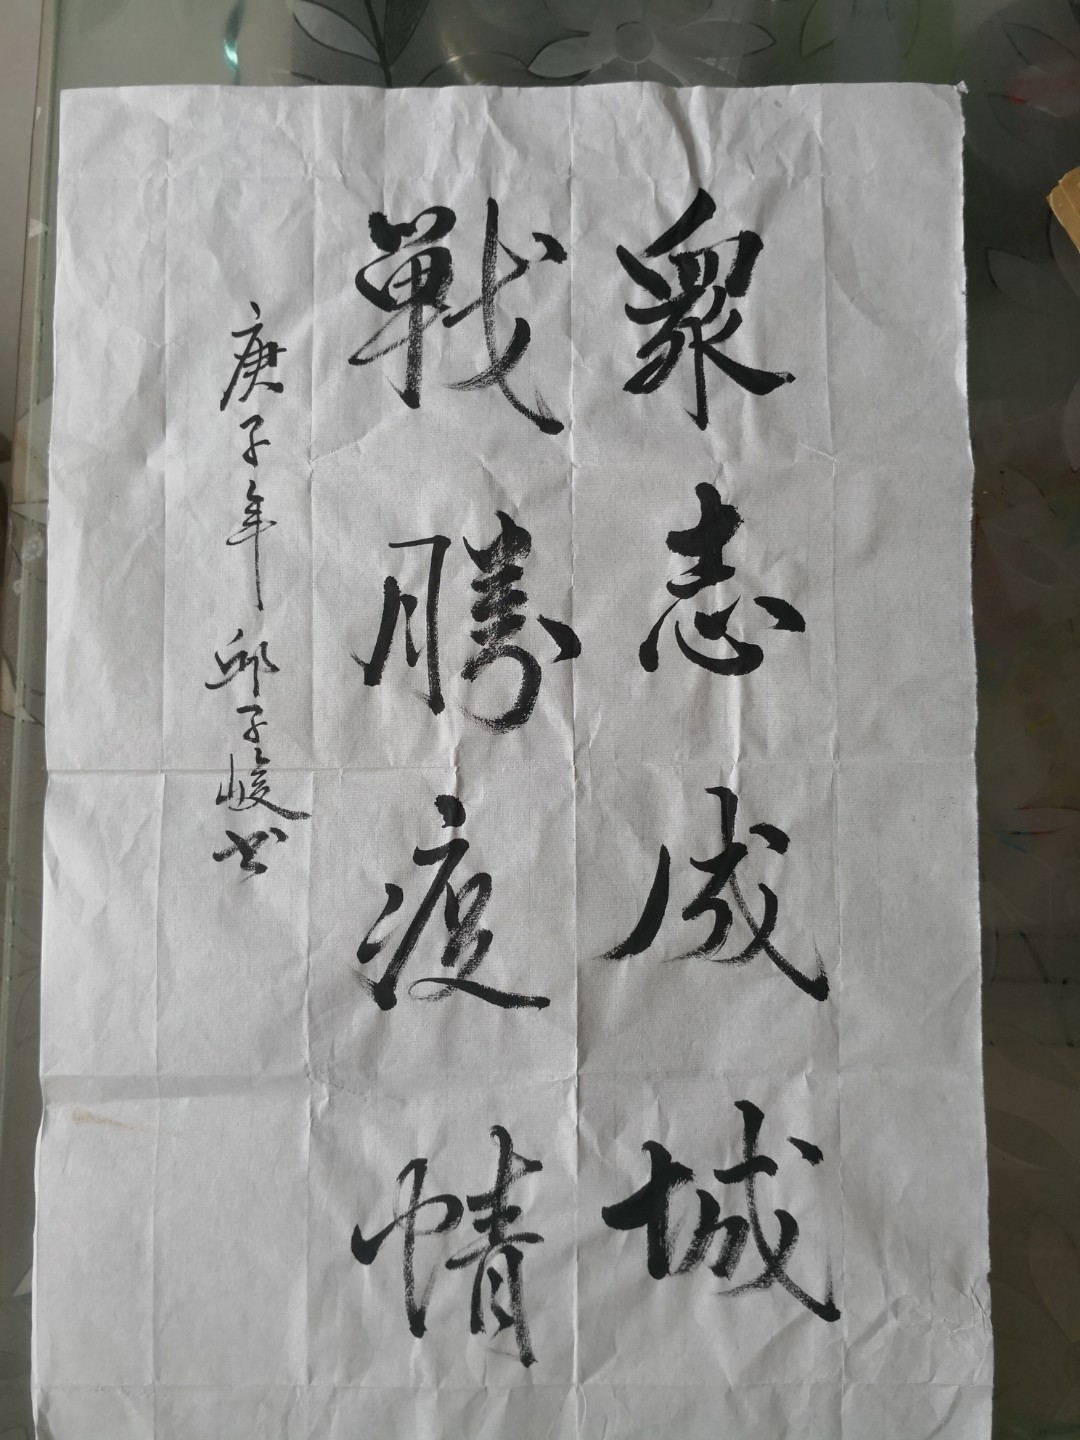 眾志成城
戰勝疫情
庚子年邱子峻书